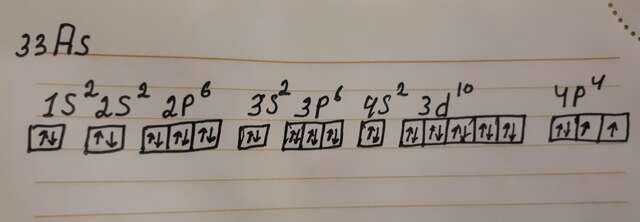 33As
1S² 2S² 2P⁶ 3S² 3P⁶ 4S² 3d¹⁰ 4P⁴
↑↓ ↑↓ ↑↓ ↑↓ ↑↓ ↑↓ ↑↓ ↑↓ ↑↓ ↑↓ ↑↓ ↑↓ ↑↓ ↑↓ ↑↓ ↑↓ ↑ ↑